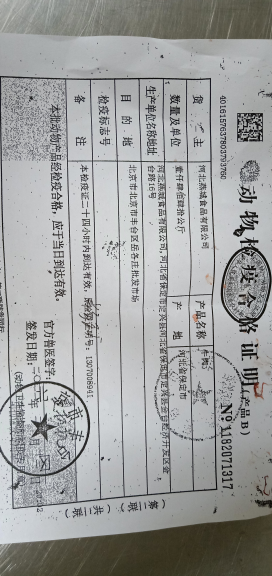 动物检疫合格证明(产品B)
4016157637803793760
№ 1182071317
货主 河北燕城食品有限公司 产品名称 牛肉
数量及单位 壹仟肆佰肆拾公斤 产地 河北省保定市
生产单位名称地址 河北燕城食品有限公司,河北省保定市定兴县河北省保定市定兴县金台经济开发区金台路16号
目的地 北京市北京市丰台区岳各庄批发市场
检疫标志号
备注 本检疫证二十四小时内到达有效. 1307008941
本批动物产品经检疫合格,应于当日到达有效。
官方兽医签字:
签发日期:二〇二 年 月
(第二联)(共二联)